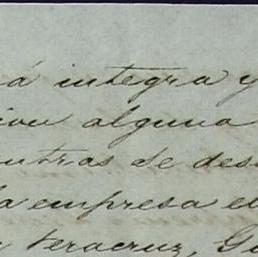 á integra y
cion alguna
entras se des
la empresa e
Veracruz, G